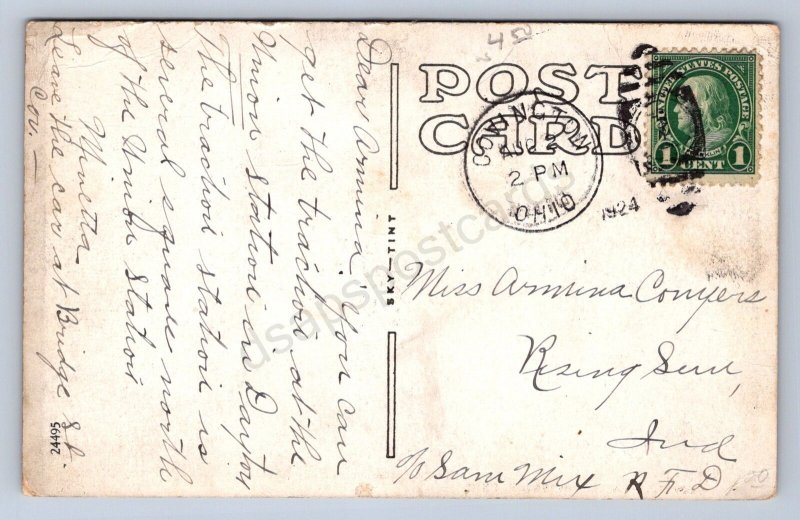 Dear Armina, You can
get the traction at the
Union Station in Dayton
The traction station is
several squares north
of the Union Station
Minetta
Leave the car at Bridge St.
Cov.—
24495
SKY-TINT
45
POST
CARD
COVINGTON
AUG 2
2 PM
OHIO
1924
UNITED STATES POSTAGE
FRANKLIN
1 CENT 1
Miss Armina Conyers
Rising Sun,
Ind
c/o Sam Mix R.F.D.
dsapspostcards